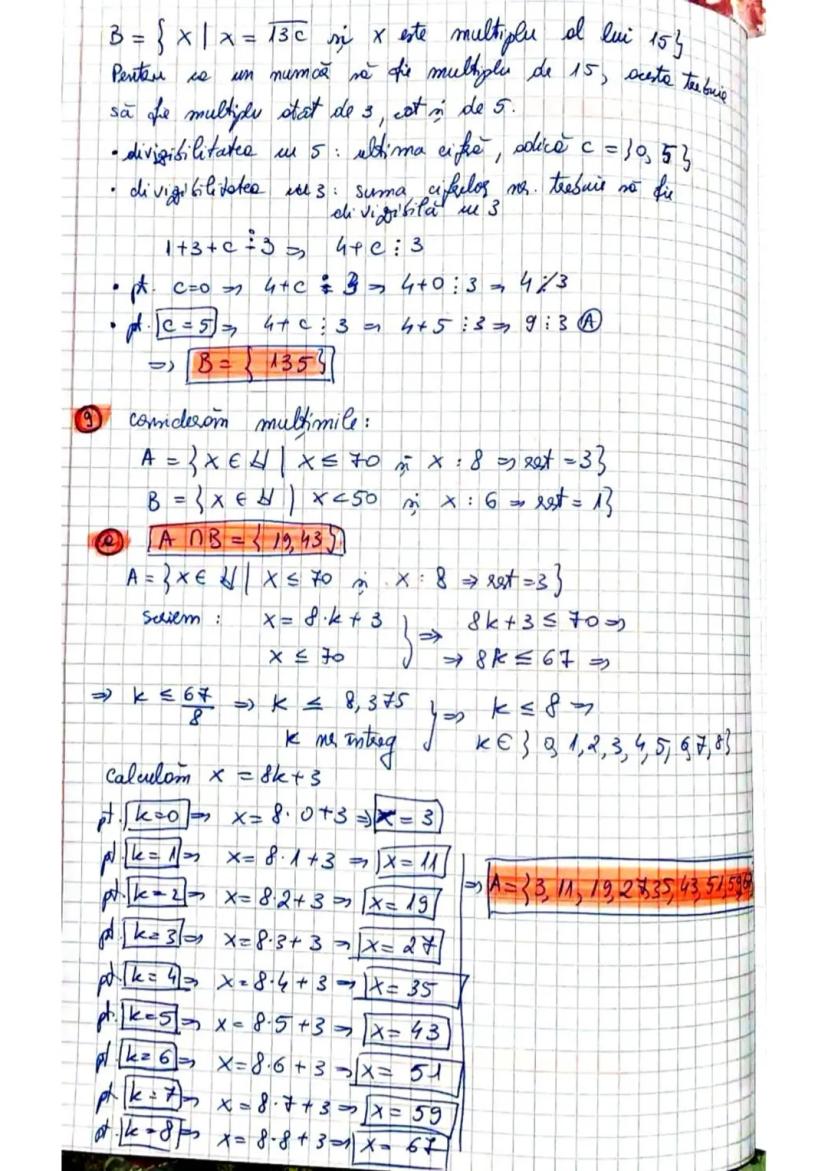 B = { x | x = 13c și x este multiplu al lui 15}
Pentru ca un număr să fie multiplu de 15, acesta trebuie
să fie multiplu atât de 3, cât și de 5.
• divizibilitatea cu 5 : ultima cifră, adică c = {0, 5}
• divizibilitatea cu 3 : suma cifrelor nr. trebuie să fie
divizibilă cu 3
1+3+c ⋮ 3 ⇒ 4+c ⋮ 3
• pt. c=0 ⇒ 4+c ⋮ 3 ⇒ 4+0 ⋮ 3 ⇒ 4 ⋮̸ 3
• pt. c=5 ⇒ 4+c ⋮ 3 ⇒ 4+5 ⋮ 3 ⇒ 9 ⋮ 3 (A)
⇒ B = { 135}
9 considerăm mulțimile:
A = {x ∈ N | x ≤ 70 și x : 8 ⇒ rest = 3}
B = {x ∈ N | x < 50 și x : 6 ⇒ rest = 1}
a A ∩ B = { 19, 43}
A = {x ∈ N | x ≤ 70 și x : 8 ⇒ rest = 3}
Scriem : x = 8·k + 3 } ⇒ 8k + 3 ≤ 70 ⇒
x ≤ 70 ⇒ 8k ≤ 67 ⇒
⇒ k ≤ 67/8 ⇒ k ≤ 8,375 } ⇒ k ≤ 8 ⇒
k nr întreg k ∈ { 0, 1, 2, 3, 4, 5, 6, 7, 8}
Calculăm x = 8k + 3
pt. k=0 ⇒ x = 8·0+3 ⇒ x = 3
pt. k=1 ⇒ x = 8·1+3 ⇒ x = 11
pt. k=2 ⇒ x = 8·2+3 ⇒ x = 19
⇒ A = {3, 11, 19, 27, 35, 43, 51, 59,
pt. k=3 ⇒ x = 8·3+3 ⇒ x = 27
pt. k=4 ⇒ x = 8·4+3 ⇒ x = 35
pt. k=5 ⇒ x = 8·5+3 ⇒ x = 43
pt. k=6 ⇒ x = 8·6+3 ⇒ x = 51
pt. k=7 ⇒ x = 8·7+3 ⇒ x = 59
pt. k=8 ⇒ x = 8·8+3 ⇒ x = 67